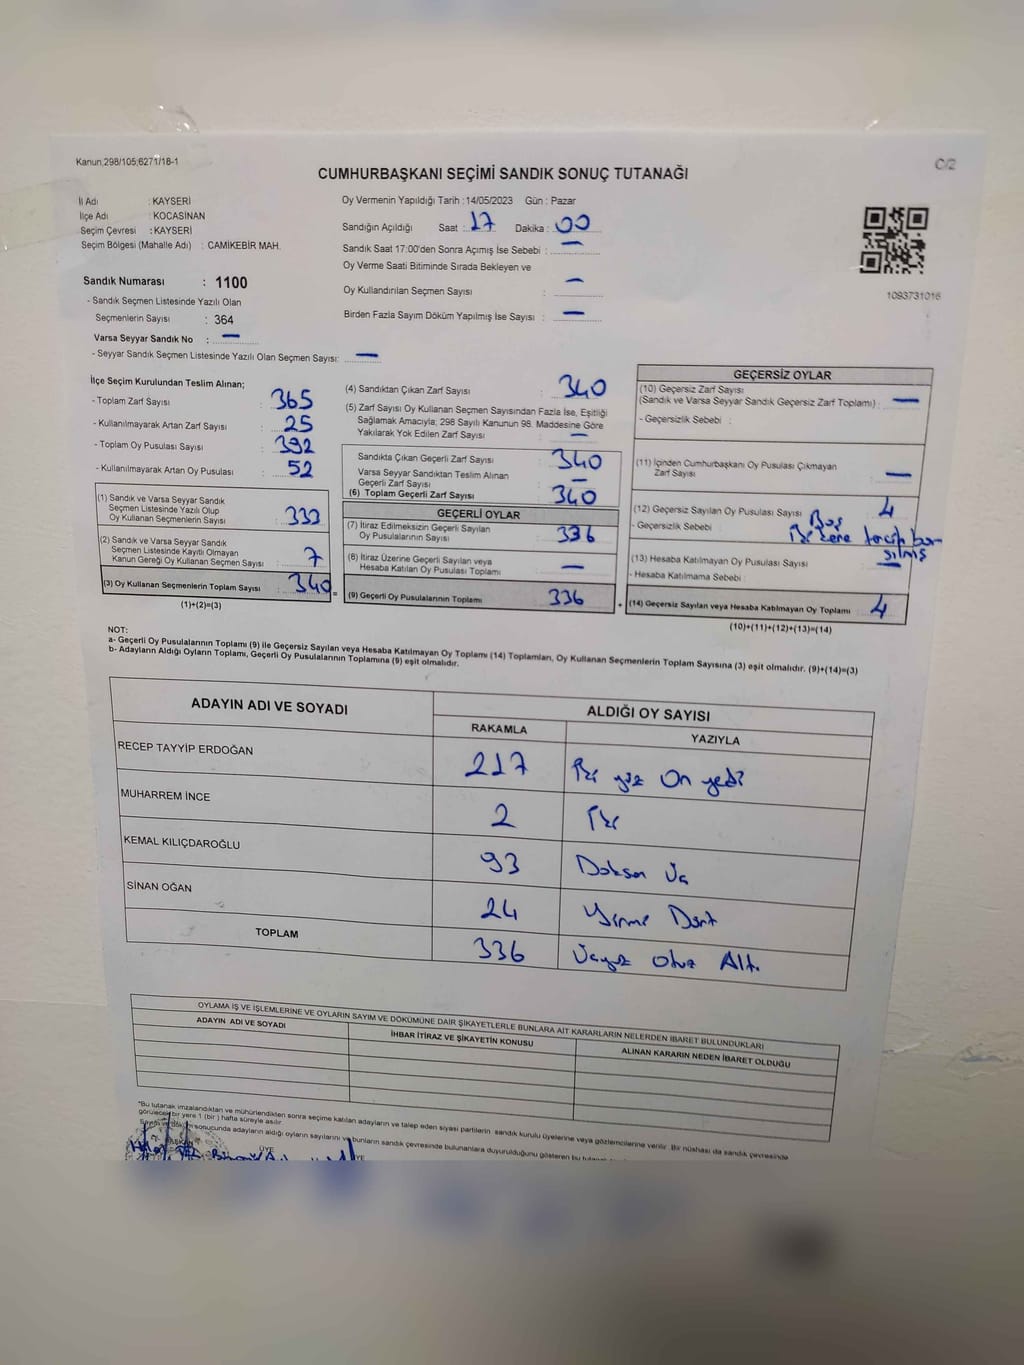 Kanun,298/105;6271/18-1
C/2
CUMHURBAŞKANI SEÇİMİ SANDIK SONUÇ TUTANAĞI
İl Adı : KAYSERİ
İlçe Adı : KOCASİNAN
Seçim Çevresi : KAYSERİ
Seçim Bölgesi (Mahalle Adı) : CAMİKEBİR MAH.
Oy Vermenin Yapıldığı Tarih :14/05/2023 Gün : Pazar
Sandığın Açıldığı Saat : 17 Dakika : 00
Sandık Saat 17:00'den Sonra Açımış İse Sebebi : —
Oy Verme Saati Bitiminde Sırada Bekleyen ve
Oy Kullandırılan Seçmen Sayısı : —
Birden Fazla Sayım Döküm Yapılmış İse Sayısı : —
1093731016
Sandık Numarası : 1100
- Sandık Seçmen Listesinde Yazılı Olan
Seçmenlerin Sayısı : 364
Varsa Seyyar Sandık No : —
- Seyyar Sandık Seçmen Listesinde Yazılı Olan Seçmen Sayısı: —
İlçe Seçim Kurulundan Teslim Alınan;
- Toplam Zarf Sayısı : 365
- Kullanılmayarak Artan Zarf Sayısı : 25
- Toplam Oy Pusulası Sayısı : 392
- Kullanılmayarak Artan Oy Pusulası : 52
(1) Sandık ve Varsa Seyyar Sandık
Seçmen Listesinde Yazılı Olup
Oy Kullanan Seçmenlerin Sayısı : 333
(2) Sandık ve Varsa Seyyar Sandık
Seçmen Listesinde Kayıtlı Olmayan
Kanun Gereği Oy Kullanan Seçmen Sayısı : 7
(3) Oy Kullanan Seçmenlerin Toplam Sayısı : 340 =
(1)+(2)=(3)
(4) Sandıktan Çıkan Zarf Sayısı : 340
(5) Zarf Sayısı Oy Kullanan Seçmen Sayısından Fazla İse, Eşitliği
Sağlamak Amacıyla; 298 Sayılı Kanunun 98. Maddesine Göre
Yakılarak Yok Edilen Zarf Sayısı : —
Sandıkta Çıkan Geçerli Zarf Sayısı : 340
Varsa Seyyar Sandıktan Teslim Alınan
Geçerli Zarf Sayısı : —
(6) Toplam Geçerli Zarf Sayısı : 340
GEÇERLİ OYLAR
(7) İtiraz Edilmeksizin Geçerli Sayılan
Oy Pusulalarının Sayısı : 336
(8) İtiraz Üzerine Geçerli Sayılan veya
Hesaba Katılan Oy Pusulası Toplamı : —
(9) Geçerli Oy Pusulalarının Toplamı : 336 +
GEÇERSİZ OYLAR
(10) Geçersiz Zarf Sayısı
(Sandık ve Varsa Seyyar Sandık Geçersiz Zarf Toplamı) : —
- Geçersizlik Sebebi :
(11) İçinden Cumhurbaşkanı Oy Pusulası Çıkmayan
Zarf Sayısı : —
(12) Geçersiz Sayılan Oy Pusulası Sayısı : 4
- Geçersizlik Sebebi : Boş
İki kere tercih basılmış
(13) Hesaba Katılmayan Oy Pusulası Sayısı : —
- Hesaba Katılmama Sebebi :
(14) Geçersiz Sayılan veya Hesaba Katılmayan Oy Toplamı : 4
(10)+(11)+(12)+(13)=(14)
NOT:
a- Geçerli Oy Pusulalarının Toplamı (9) ile Geçersiz Sayılan veya Hesaba Katılmayan Oy Toplamı (14) Toplamları, Oy Kullanan Seçmenlerin Toplam Sayısına (3) eşit olmalıdır. (9)+(14)=(3)
b- Adayların Aldığı Oyların Toplamı, Geçerli Oy Pusulalarının Toplamına (9) eşit olmalıdır.
ADAYIN ADI VE SOYADI ALDIĞI OY SAYISI
RAKAMLA YAZIYLA
RECEP TAYYİP ERDOĞAN 217 İki yüz On yedi
MUHARREM İNCE 2 İki
KEMAL KILIÇDAROĞLU 93 Doksan Üç
SİNAN OĞAN 24 Yirmi Dört
TOPLAM 336 Üçyüz Otuz Altı
OYLAMA İŞ VE İŞLEMLERİNE VE OYLARIN SAYIM VE DÖKÜMÜNE DAİR ŞİKAYETLERLE BUNLARA AİT KARARLARIN NELERDEN İBARET BULUNDUKLARI
ADAYIN ADI VE SOYADI İHBAR İTİRAZ VE ŞİKAYETİN KONUSU ALINAN KARARIN NEDEN İBARET OLDUĞU
"Bu tutanak imzalandıktan ve mühürlendikten sonra seçime katılan adayların ve talep eden siyasi partilerin sandık kurulu üyelerine veya gözlemcilerine verilir. Bir nüshası da sandık çevresinde
görülecek bir yere 1 (bir ) hafta süreyle asılır.
sonucunda adayların aldığı oyların sayılarını ve bunların sandık çevresinde bulunanlara duyurulduğunu gösteren bu
BAŞKAN ÜYE